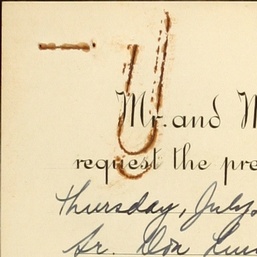 Mr. and M
request the pre
Thursday, July
Sr. Don Luis